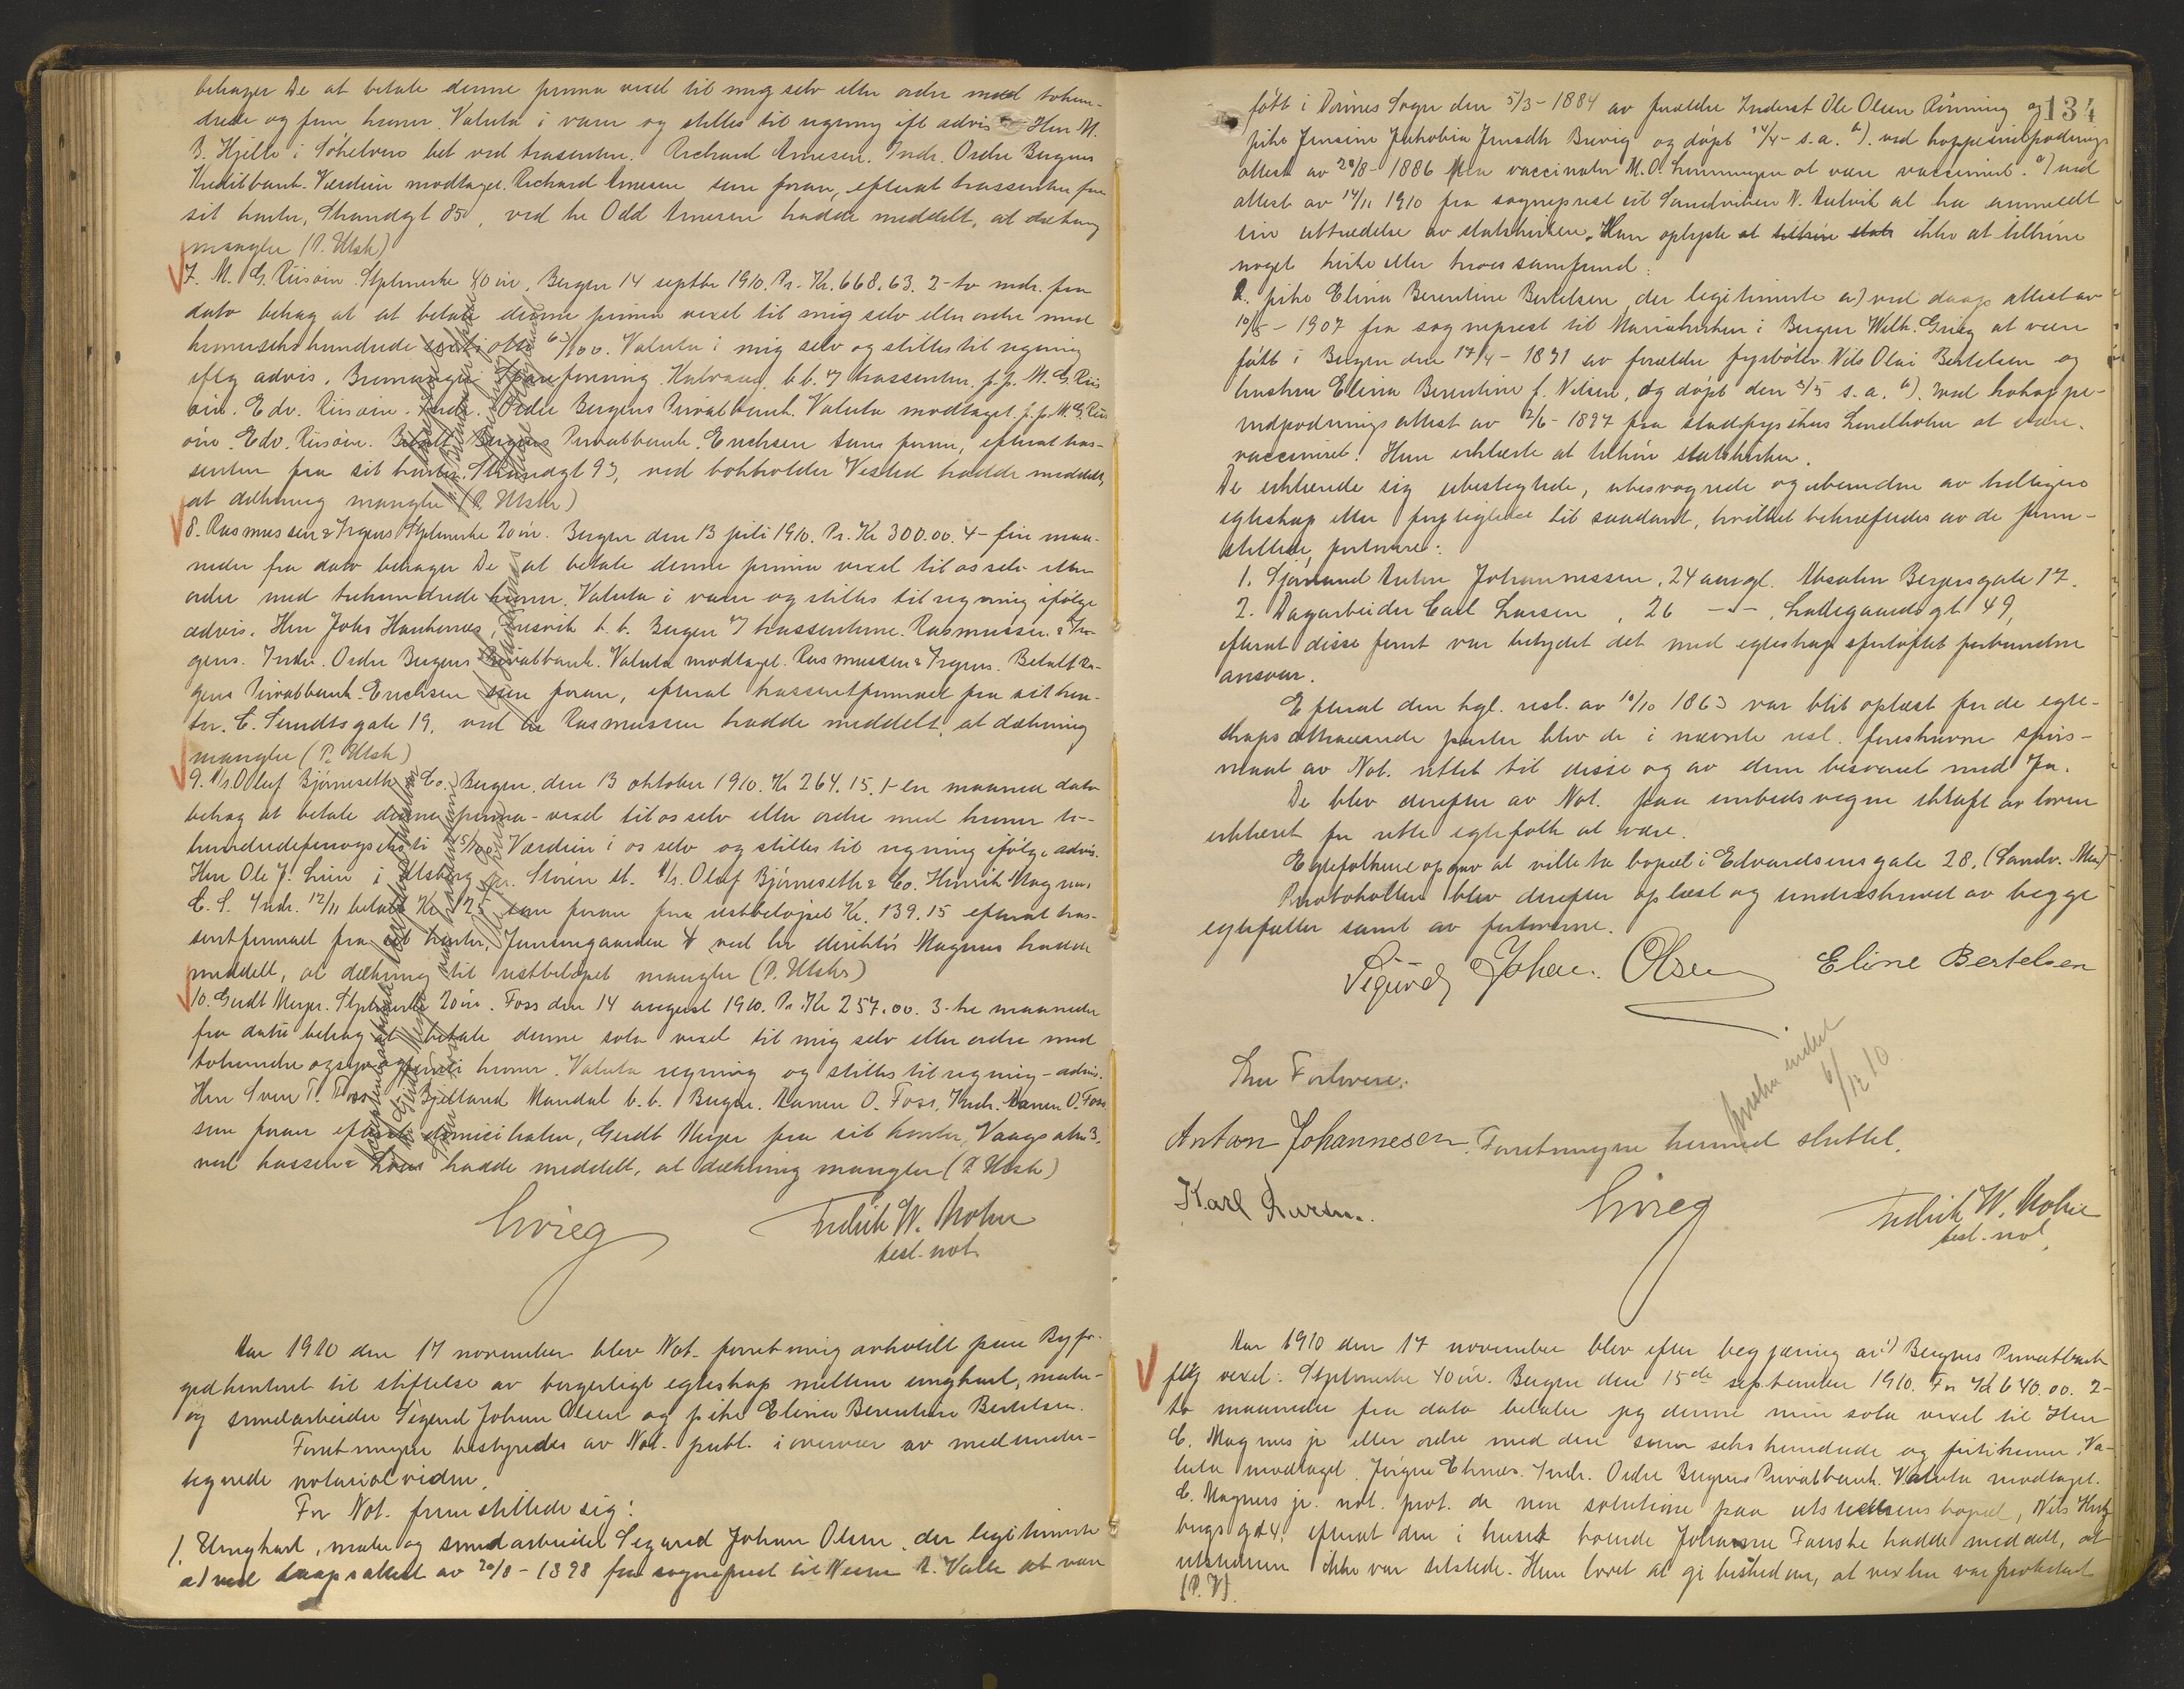 behager De at betale denne prima vexel til mig selv eller ordre med tohun-
drede og fem kroner. Valuta i varer og stilles til regning ift advis Herr M.
B. Hjelle i bet ved trasenten. Richard Arnesen. Indr. Ordre Bergens
Kreditbank. Værdien modtaget. Richard Arnesen som foran, efterat trassenten fra
sit kontor, Strandgt 85, ved hr Odd Arnesen hadde meddelt, at dækning
mangler (P. Utsk)
7. M. G. Riisøen. Stplmerke 40 øre, Bergen 14 septbr 1910. Pr. Kr. 668.63. 2-to mdr. fra
dato behag at at betale denne prima vexel til mig selv eller ordre med
kronersekshundrede seksti otte 63/100. Valuta i mig selv og stilles til regning
iflg advis. Bremanger Spareforening Kalvaag b.b. v/ trassenten. p.p. M. G. Riis
øen. Edv. Riisøen. Indr. Ordre Bergens Privatbank. Valuta modtaget. p.p. M. G. Riis
øen. Edv. Riisøen. Betalt Bergens Privatbank. Erichsen som foran, efterat tras-
senten fra sit kontor, Strandgt 93, ved bokholder Vested hadde meddelt,
at dækning mangler (P. Utsk)
8. Rasmussen & Irgens Stplmerke 20 øre. Bergen den 13 juli 1910. Pr. Kr 300.00. 4-fire maa-
neder fra dato behager De at betale denne prima vexel til os selv eller
ordre med trehundrede kroner. Valuta i varer og stilles til regning ifølge
advis. Herr Johs b.b. Bergen v/ trassentene. Rasmussen & Ir-
gens. Indr. Ordre Bergens Privatbank. Valuta modtaget. Rasmussen & Irgens. Betalt Ber-
gens Privatbank. Erichsen som foran, efterat trassentfirmaet fra sit kon-
tor. C. Sundtsgate 19, ved hr Rasmussen hadde meddelt, at dækning
mangler (P. Utsk)
9. A/s. Oluf Bjørneseth & Co. Bergen, den 13 oktober 1910. Kr 264.15. 1-en maaned dato
behag at betale denne prima-vexel til os selv eller ordre med kroner to-
hundredefireogseksti 15/100. Værdien i os selv og stilles til regning ifølge advis.
Herr Ole J. i pr. Støren st. A/s. Oluf Bjørneseth & Co. Henrik Magnus
E. S. Indr. 12/11 betalt Kr 125 som foran fra restbeløpet Kr. 139.15 efterat tras-
sentfirmaet fra sit kontor, Jonsvoldgaarden 4 ved hr direktør Magnus hadde
meddelt, at dækning til restbeløpet mangler (P. Utsk)
10. Gerdt Meyer. Stplmerke 20 øre. Foss den 14 august 1910. Pr. Kr 257.00. 3-tre maaneder
fra dato behag at betale denne sola vexel til mig selv eller ordre med
tohundre ogsyvogfemti kroner. Valuta regning og stilles til regning - advis.
Herr Sven T. Foss Bjelland Mandal b.b. Bergen. Aanen O. Foss. Indr. Aanen O. Foss
som foran efterat domiciliaten, Gerdt Meyer fra sit kontor, Vaagsalm 3.
ved kasserer hadde meddelt, at dækning mangler (P. Utsk)
Grieg Fredrik W. Mohn
best. not.
Aar 1910 den 17 november blev Not. forretning avholdt paa Byfo-
gedkontoret til stiftelse av borgerligt egteskap mellem ungkarl, maler-
og smedarbeider Sigurd Johan Olsen og pike Elina Berentine Bertelsen.
Forretningen bestyredes av Not. publ. i overvær av medunder-
tegnede notarialvidne.
For Not. fremstillede sig:
1. Ungkarl, maler og smedarbeider Sigurd Johan Olsen, der legitimerte
a) ved daapsattest av 20/8 - 1898 fra sogneprest til A. Valle at være
134
født i Dviines Sogn den 5/3 - 1884 av forældre Inderst Ole Olsen Rønning og
pike Jensine Jakobia Brevig og døpt 14/4 - s.a. b). ved koppeindpodnings
attest av 20/8 - 1886 fra vaccinatør M. O. at være vaccineret. c) med
attest av 14/11 1910 fra sogneprest til Sandviken N. at ha anmeldt
sin uttrædelse av statskirken. Han oplyste at tilhøre stats ikke at tilhøre
noget kirke eller troessamfund.
2. pike Elina Berentine Bertelsen, der legitimerte a) ved daaps attest av
10/5 - 1907 fra sogneprest til Mariakirken i Bergen Wilh. Grieg at være
født i Bergen den 17/4 - 1891 av forældre fyrbøter Nils Olai Bertelsen og
hustru Elina Berentine f. Nilsen, og døpt den 3/5 s.a. b). ved koppe-
indpodningsattest av 2/6 - 1897 fra stadsfysikus Lindholm at være
vaccineret. Hun erklærte at tilhøre statskirken.
De erklærede sig ubeslegtede, ubesvogrede og ubundne av tidligere
egteskap eller forpligtelse til saadant, hvilket bekræftedes av de frem-
stillede forlovere:
1. Sjømand Anton Johannessen, 24 aar gl. Absalon Beyersgate 17.
2. Dagarbeider Carl Larsen, 26 -"-, Ladegaardsgt 49,
efterat disse først var betydet det med egteskapsforløftet forbundne
ansvar.
Efterat den kgl. resl. av 10/10 1863 var blit oplæst for de egte-
skaps attraaende parter blev de i nævnte resl. foreskrevne spørs-
maal av Not. rettet til disse og av dem besvaret med Ja.
De blev derefter av Not. paa embeds vegne ikraft av loven
erklæret for rette egtefolk at være.
Egtefolkene opgav at ville ta bopæl i Edvardsensgate 28. (Sandv. Men)
Protokollen blev derefter oplæst og underskrevet av begge
egtefæller samt av forloverne.
Sigurd Johan. Olsen Eline Bertelsen
Som Forlovere: 6/12 10
Anton Johannesen. Forretningen hermed sluttet.
Karl Larsen. Grieg Fredrik W. Mohn
best. not.
Aar 1910 den 17 november blev efter begjæring av 1) Bergens Privatbank
flg vexel: Stplmerke 40 øre. Bergen den 15de september 1910. For Kr 640.00. 2-
to maaneder fra dato betaler jeg denne min sola vexel til Herr
C. Magnus jr eller ordre med den sum sekshundrede og firtikroner. Va-
luta modtaget. Jørgen Indr. Ordre Bergens Privatbank. Valuta modtaget.
C. Magnus jr. not. prot. de non solutione paa utstederens bopæl, Nils
bugs gt 4, efterat den i huset boende Johanne Fauske hadde meddelt, at
utstederen ikke var tilstede. Hun lovet at gi besked om, at vexlen var protestert
(P. V)